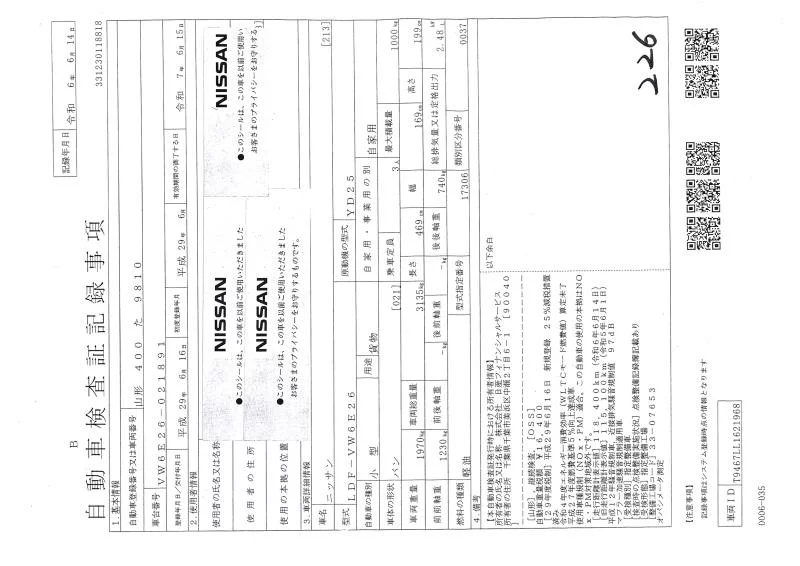 B
自動車検査証記録事項
記録年月日 令和 6年 6月14日
331230118818
1. 基本情報
自動車登録番号又は車両番号 山形 400 た 9810
車台番号 VW6E26-021891
登録年月日/交付年月日 平成 29年 6月16日 初度登録年月 平成 29年 6月 有効期間の満了する日 令和 7年 6月15日
2. 使用者情報
使用者の氏名又は名称
使用者の住所
使用の本拠の位置
NISSAN
●このシールは、この車を以前ご使用いただきました
NISSAN
●このシールは、この車を以前ご使用いただきました
お客さまのプライバシーをお守りするものです。
NISSAN
●このシールは、この車を以前ご使用い
お客さまのプライバシーをお守りする
3. 車両詳細情報
車名 ニッサン [213]
型式 LDF-VW6E26 原動機の型式 YD25
自動車の種別 小型 用途 貨物 自家用・事業用の別 自家用
車体の形状 バン [021] 乗車定員 3人 最大積載量 1000kg
車両重量 1970kg 車両総重量 3135kg 長さ 469cm 幅 169cm 高さ 199cm
前前軸重 1230kg 前後軸重 -kg 後前軸重 -kg 後後軸重 740kg 総排気量又は定格出力 2.48L
燃料の種類 軽油 型式指定番号 17306 類別区分番号 0037
4. 備考
【本自動車検査証発行時における所有者情報】
所有者の氏名又は名称 株式会社 日産フィナンシャルサービス
所有者の住所 千葉県千葉市美浜区中瀬2丁目6-1 [90040
以下余白
[山形], 継続検査, [OSS]
自動車重量税額 ¥16,400
[29年度税制] 平成29年6月16日 新規登録 25%減税措置
済み
令和4年度エネルギー消費効率(WLTCモード燃費値) 算定未了
平成27年度燃費基準5%向上達成車
使用車種規制(NOx・PM)適合, この自動車の使用の本拠はNO
x・PM対策地域外です。
[走行距離計表示値] 118,400km (令和6年6月14日)
[旧走行距離計表示値] 115,100km (令和5年6月1日)
平成12年騒音規制車, 近接排気騒音規制値 97dB
マフラー加速騒音規制適用車
[受検種別] 指定整備車
[検査時の点検整備実施状況] 点検整備記録簿記載あり
[受検形態] 指定整備工場
[整備工場コード] 33-07653
オパシメータ測定
226
【注意事項】
記録事項はシステム登録時点の情報となります
車両ID T9467LL1621968
0006-035